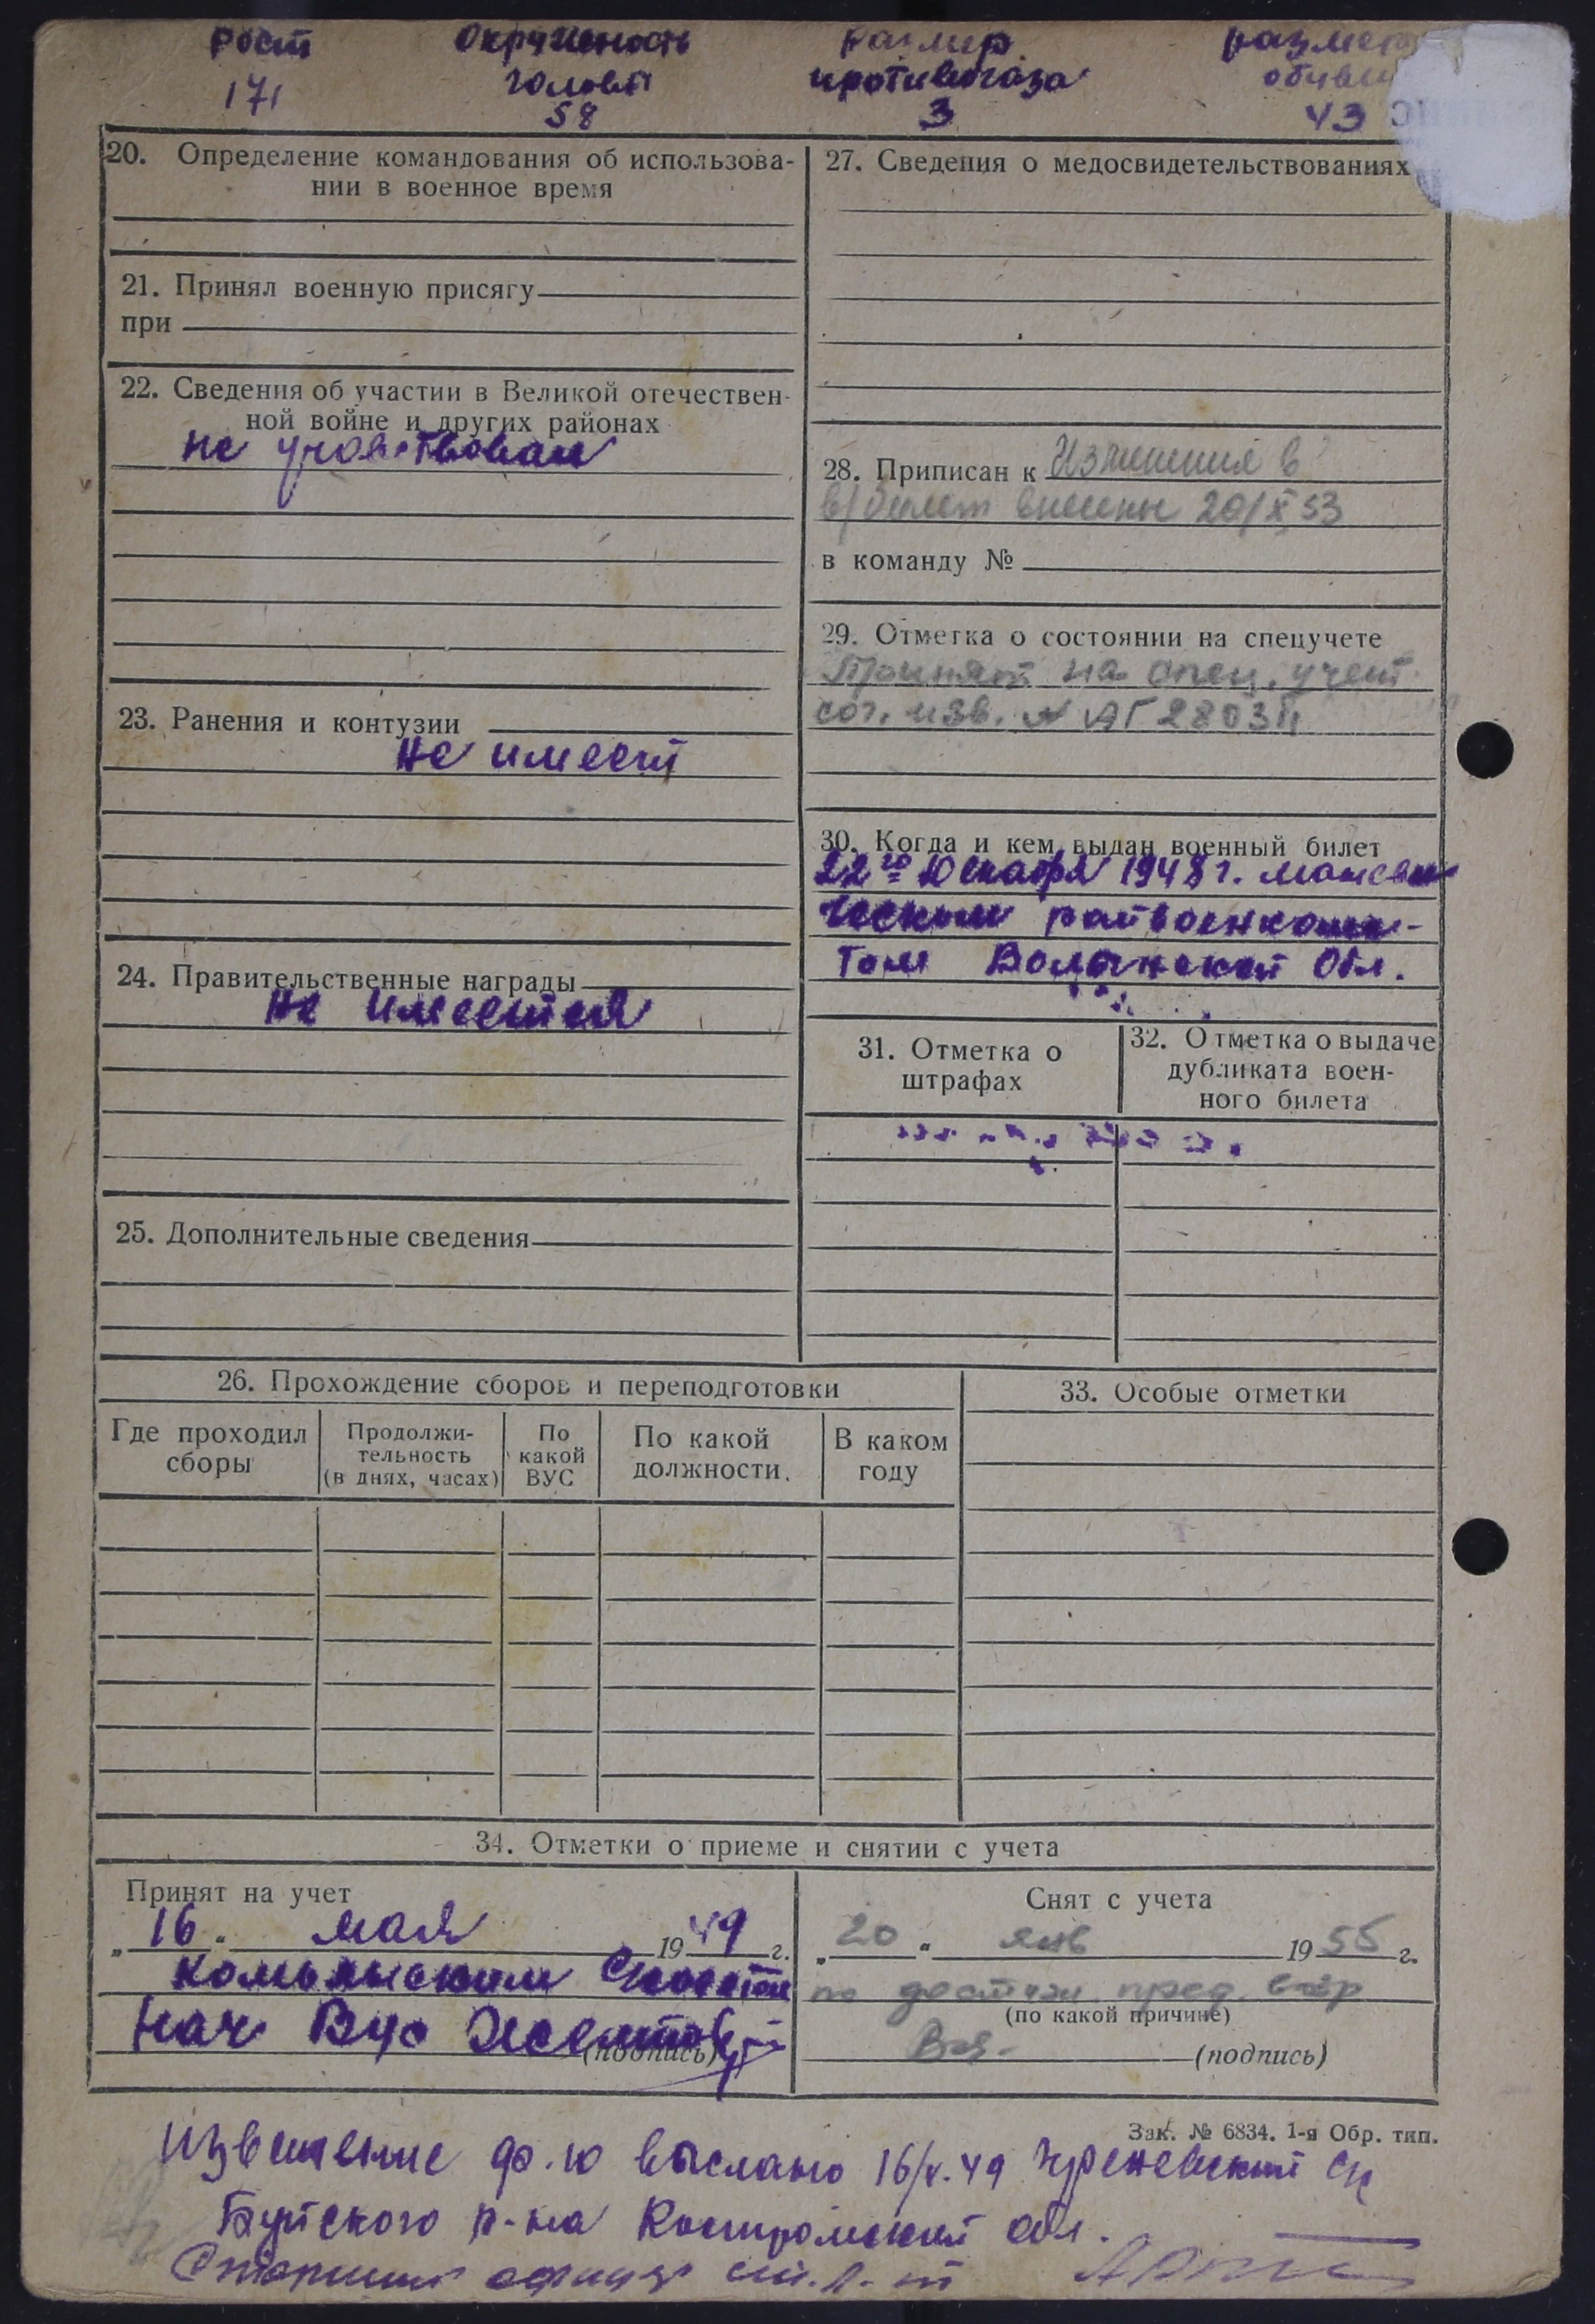 Рост Окружность Размер размер
головы противогаза обуви
171 58 3 43
20. Определение командования об использова-
нии в военное время
21. Принял военную присягу
при
22. Сведения об участии в Великой отечествен-
ной войне и других районах
не участвовал
23. Ранения и контузии
не имеет
24. Правительственные награды
не имеется
25. Дополнительные сведения
27. Сведения о медосвидетельствованиях
28. Приписан к Изменения в
в/билет внесены 20/X 53
в команду №
29. Отметка о состоянии на спецучете
Принят на спец. учет
сог. изв. № АГ 2803
30. Когда и кем выдан военный билет
22го Декабря 1948 г.
ческим райвоенкома-
том Волынской Обл.
31. Отметка о
штрафах
32. Отметка о выдаче
дубликата воен-
ного билета
26. Прохождение сборов и переподготовки
Где проходил
сборы
Продолжи-
тельность
(в днях, часах)
По
какой
ВУС
По какой
должности.
В каком
году
33. Особые отметки
34. Отметки о приеме и снятии с учета
Принят на учет
„16“ мая 1949 г.
Нач Вус
(подпись)
Снят с учета
„20“ янв 1955 г.
по достиж. пред. возр
(по какой причине)
(подпись)
Зак. № 6834. 1-я Обр. тип.
Извещение ф. 10 выслано 16/V.49
Буйского р-на Костромской обл.
Старший офицер